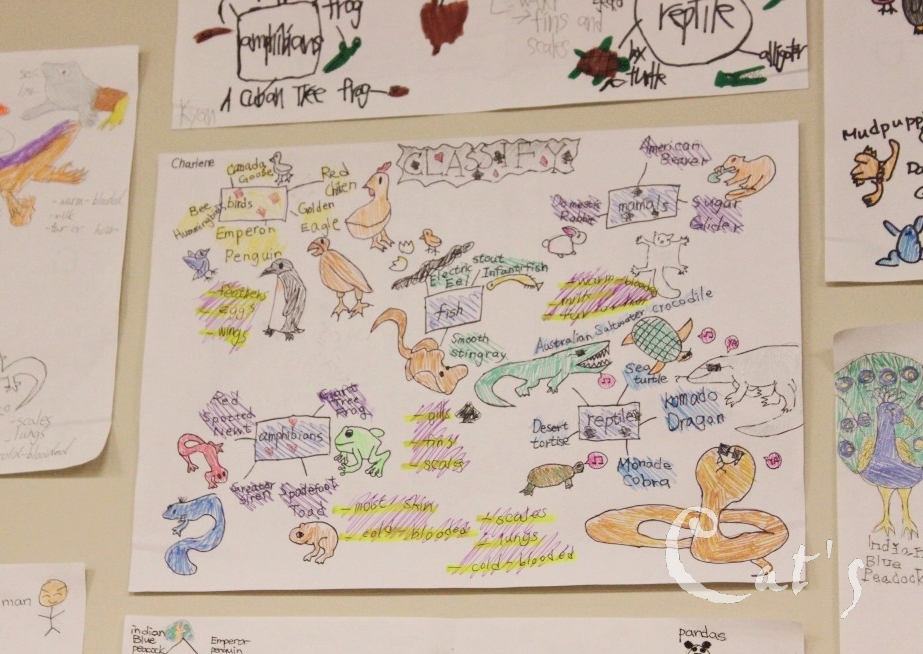 frog
amphibians
1 Cuban Tree frog
Kyan
fins and
scales
reptile
box
turtle
alligator
- warm-blooded
- milk
- fur or hair
- scales
lungs
cold-blooded
Charlene
CLASSIFY
Canada
Goose
birds
Red
Golden
Eagle
Bee
Hummingbird
Emperon
Penguin
- feathers
- eggs
- wings
American
Beaver
mamals
Domestic
Rabbit
Sugar
Glider
- warm-blooded
- milk
- fur or hair
Electric
Eel
stout
Infantfish
fish
Smooth
Stingray
- gills
- fins
- scales
Australian Saltwater crocodile
Sea
turtle
Komado
Dragan
reptiles
Desert
tortise
Monade
Cobra
- scales
- lungs
- cold-blooded
Red
Spotted
Newt
Giant
Tree
Frog
amphibians
Greater
Siren
Spadefoot
Toad
- moist skin
- cold-blooded
Mudpuppy
Indian
Blue
Peacock
man
indian
Blue
peacock
Emperor
penguin
pandas
Cat's